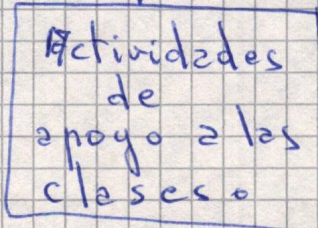 Actividades
de
apoyo a las
clases.